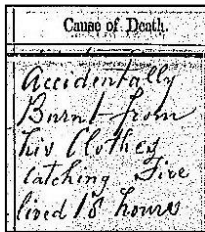 Cause of Death.
Accidentally
Burnt from
his Clothes
catching Fire
lived 18 hours